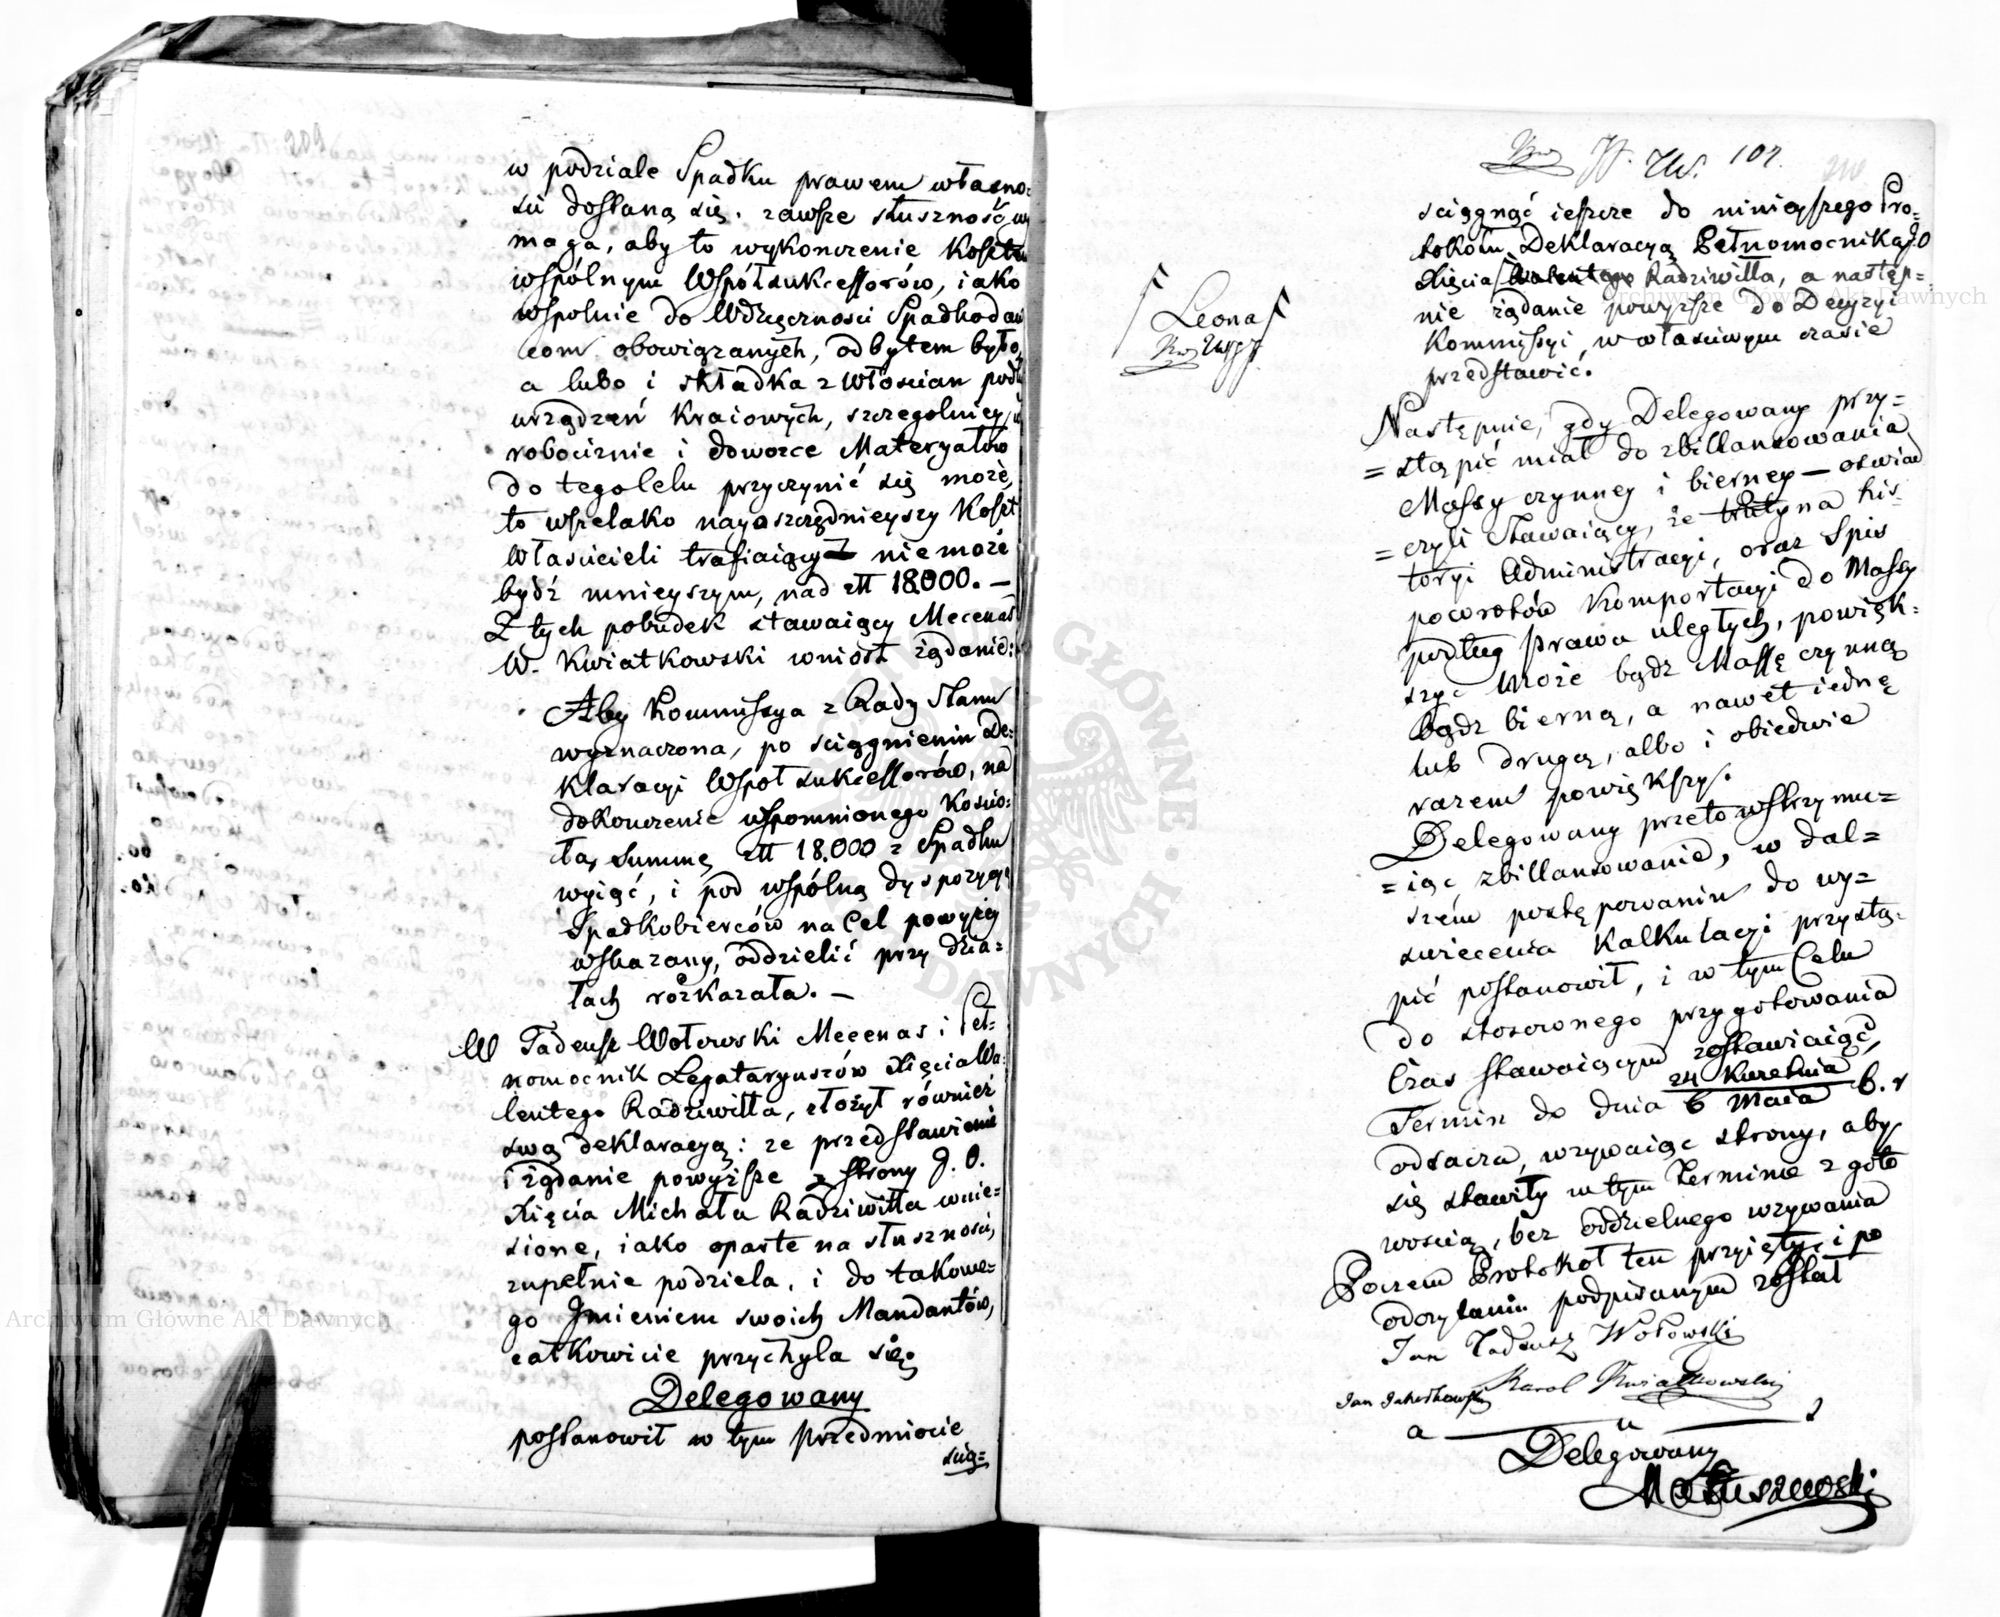 w podziale Spadku prawem własno-
ści dostaną się. zawsze słuszność wy
maga, aby to wykończenie kosztem
wspólnym Współsukcessorów, iako
wspolnie do Wdzięczności Spadkodaw
com obowiązanych, odbytem było,
a lubo i składka z Włościan podług
urządzeń Kraiowych, szczególniey w
robociznie i dowozce Materyałów
do tego Celu przyczynić się może,
to wszelako nayoszczędnieyszy koszt
Właścicieli trafiaiący nie może
bydź mnieyszym, nad złł 18.000. —
Z tych pobudek stawaiący Mecenas
W. Kwiatkowski wniosł żądanie:
Aby Kommissya z Rady Stanu
wyznaczona, po sciągnieniu De-
klaracyi Współsukcessorów, na
dokończenie wspomnionego Kościo-
ła, Summę złł 18.000 z Spadku
wyiąć, i pod wspólną dyspozycyą
Spadkobierców na Cel powyżey
wskazany, oddzielić przy dzia-
łach rozkazała. —
W Tadeusz Wołowski Mecenas i Peł-
nomocnik Legataryuszów Xięcia Wa-
lentego Radziwiłła, złożył również
swą deklaracyą: że przedstawienie
i żądanie powyższe z strony J. O.
Xięcia Michała Radziwiłła wnie-
sione, iako oparte na słuszności,
zupełnie podziela, i do takowe-
go Jmieniem swoich Mandantów,
całkowicie przychyla się.
Delegowany
postanowił w tym przedmiocie
scią-
107.
sciągnąć ieszcze do ninieyszego Pro-
tokołu Deklaracyą Pełnomocnika J. O
Xięcia Walentego Radziwiłła, a następ-
nie żądanie powyższe do Decyzyi
Kommissyi, w właściwym czasie
przedstawić.
Leona
Następnie, gdy Delegowany przy-
=stąpić miał do zbillansowania
Massy czynney i bierney — oswiad
=czyli Stawaiący, że na his-
toryi Administracyi, oraz Spis
powrotów Komportacyi do Massy
podług Prawa uległych, powięk-
szyć może bądz Massę czynną
bądz bierną, a nawet iednę
lub drugą, albo i obiedwie
razem powiększy.
Delegowany przeto wstrzymu=
=iąc zbillansowanie, w dal=
szem postępowaniu do wy=
swiecenia Kalkulacyi przystą-
pić postanowił, i w tym Celu
do stosownego przygotowania
Czas stawaiącym zostawiaiąc,
24 Kwietnia
Termin do dnia 6 Maia b. r
odracza, wzywaiąc strony, aby
się stawiły w tym terminie z goto
wością, bez oddzielnego wzywania
Poczem Protokoł ten przyięty, i po
odczytaniu podpisanym został
Jan Tadeusz Wołowski
Karol Kwiatkowski
Delegowany
Matuszewski
Archiwum Główne Akt Dawnych
Archiwum Główne Akt Dawnych